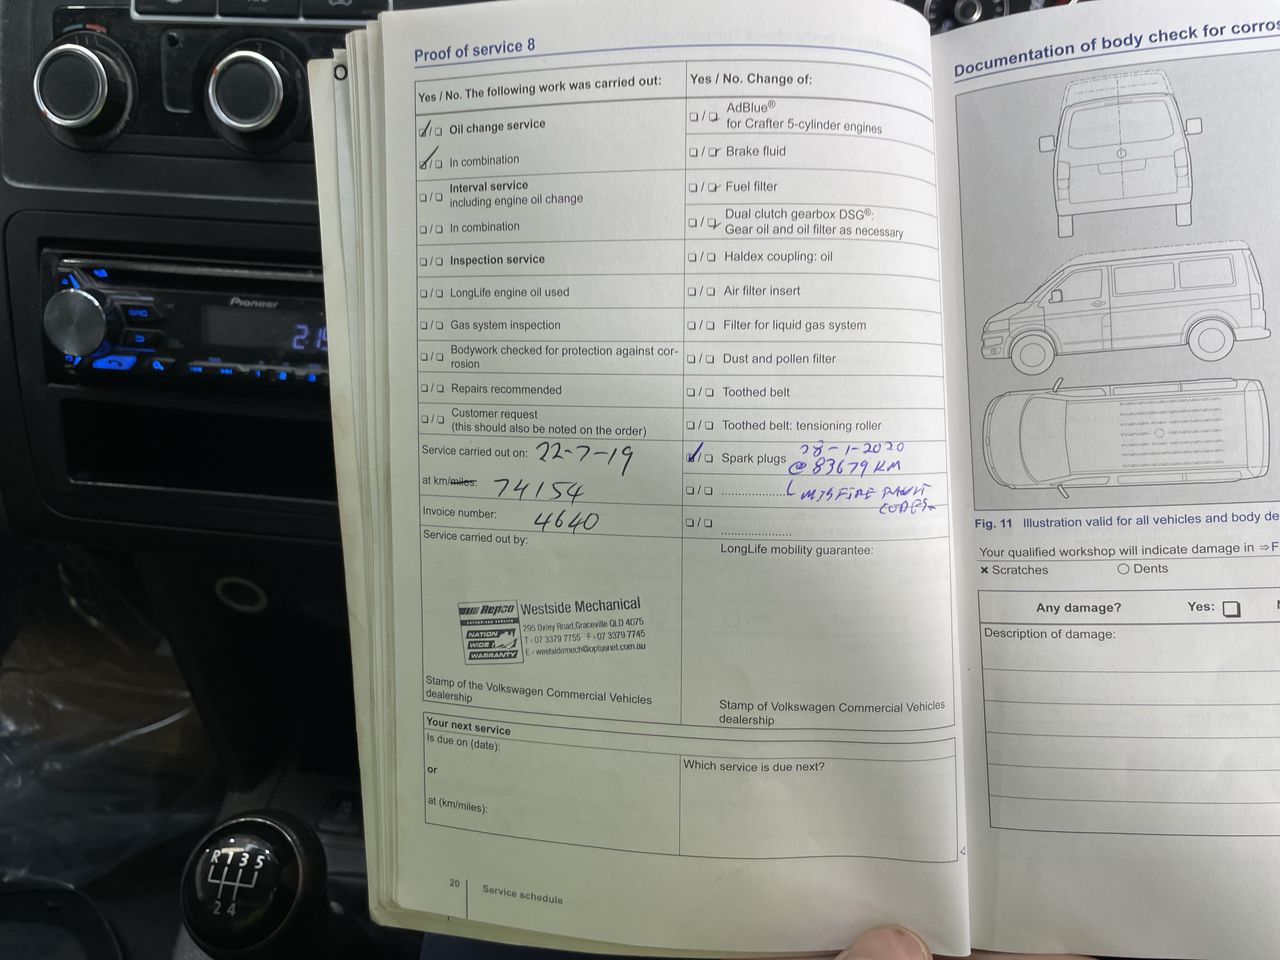 Proof of service 8
Yes / No. The following work was carried out:
❑/❑ Oil change service
❑/❑ In combination
❑/❑ Interval service
including engine oil change
❑/❑ In combination
❑/❑ Inspection service
❑/❑ LongLife engine oil used
❑/❑ Gas system inspection
❑/❑ Bodywork checked for protection against cor-
rosion
❑/❑ Repairs recommended
❑/❑ Customer request
(this should also be noted on the order)
Service carried out on: 22-7-19
at km/miles: 74154
Invoice number: 4640
Service carried out by:
Repco
AUTHORISED SERVICE
NATION
WIDE
WARRANTY
Westside Mechanical
295 Oxley Road, Graceville QLD 4075
T: 07 3379 7755 F: 07 3379 7745
E: westsidemech@optusnet.com.au
Stamp of the Volkswagen Commercial Vehicles
dealership
Yes / No. Change of:
❑/❑ AdBlue®
for Crafter 5-cylinder engines
❑/❑ Brake fluid
❑/❑ Fuel filter
❑/❑ Dual clutch gearbox DSG®:
Gear oil and oil filter as necessary
❑/❑ Haldex coupling: oil
❑/❑ Air filter insert
❑/❑ Filter for liquid gas system
❑/❑ Dust and pollen filter
❑/❑ Toothed belt
❑/❑ Toothed belt: tensioning roller
❑/❑ Spark plugs 28-1-2020
@ 83679 KM
❑/❑ .................... MISFIRE FAULT
CODES
❑/❑ ....................
LongLife mobility guarantee:
Stamp of Volkswagen Commercial Vehicles
dealership
Your next service
Is due on (date):
or
at (km/miles):
Which service is due next?
20 Service schedule
Documentation of body check for corros
Fig. 11 Illustration valid for all vehicles and body de
Your qualified workshop will indicate damage in ⇒F
× Scratches ○ Dents
Any damage? Yes: ❑
Description of damage:
Pioneer
SRC
R 1 3 5
2 4